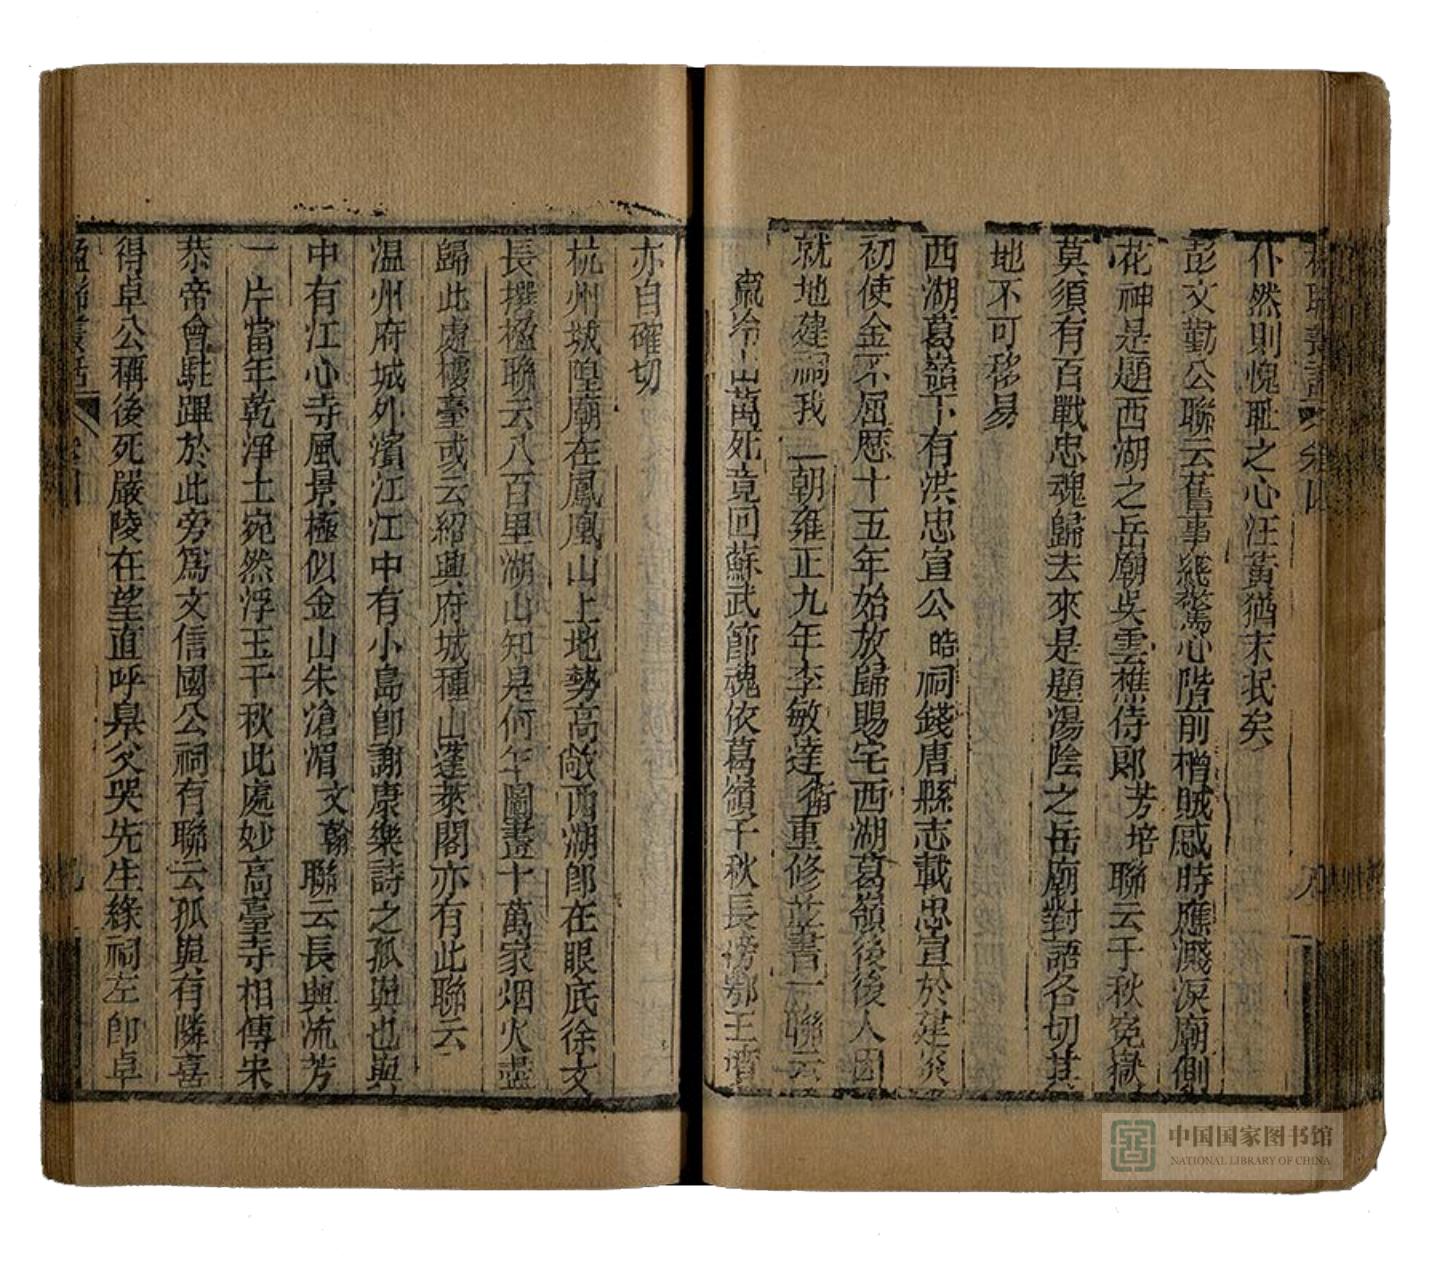 仆然則愧耻之心汪黃猶未泯矣
彭文勤公聯云舊事總驚心階前檜賊感時應濺淚廟側
花神是題西湖之岳廟吳雲樵侍郎芳培聯云千秋冤獄
莫須有百戰忠魂歸去來是題湯陰之岳廟對語各切其
地不可移易
西湖葛嶺下有洪忠宣公皓祠錢唐縣志載忠宣於建炎
初使金不屈歷十五年始放歸賜宅西湖葛嶺後後人因
就地建祠我 朝雍正九年李敏達衛重修並書一聯云
身竄冷山萬死竟回蘇武節魂依葛嶺千秋長傍鄂王墳
亦自確切
杭州城隍廟在鳳凰山上地勢高敞西湖即在眼底徐文
長撰楹聯云八百里湖山知是何年圖畫十萬家烟火盡
歸此處樓臺或云紹興府城種山蓬萊閣亦有此聯云
温州府城外濱江江中有小島即謝康樂詩之孤嶼也嶼
中有江心寺風景極似金山朱滄湄文翰聯云長與流芳
一片當年乾淨土宛然浮玉千秋此處妙高臺寺相傳宋
恭帝會駐蹕於此旁爲文信國公祠有聯云孤嶼有隣喜
得卓公稱後死嚴陵在望直呼臯父哭先生緣祠左即卓
楹聯叢話 卷四
中国国家图书馆
NATIONAL LIBRARY OF CHINA